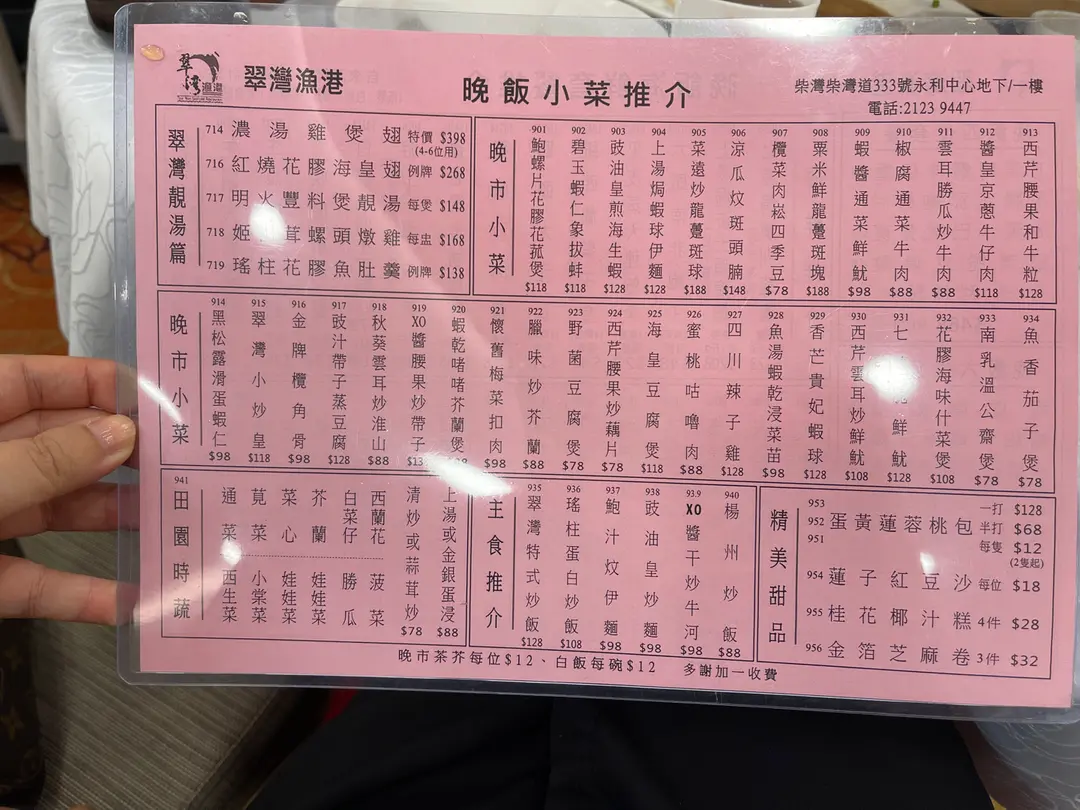 翠灣漁港
翠灣漁港
晚飯小菜推介
柴灣柴灣道333號永利中心地下/一樓
電話:2123 9447
翠灣靚湯篇
714 濃湯雞煲翅 特價 $398
(4-6位用)
716 紅燒花膠海皇翅 例牌 $268
717 明火豐料煲靚湯 每煲 $148
718 姬茸螺頭燉雞 每盅 $168
719 瑤柱花膠魚肚羹 例牌 $138
晚市小菜
901 鮑螺片花膠花菰煲 $118
902 碧玉蝦仁象拔蚌 $118
903 豉油皇煎海生蝦 $128
904 上湯焗蝦球伊麵 $128
905 菜遠炒龍躉斑球 $188
906 涼瓜炆斑頭腩 $148
907 欖菜肉崧四季豆 $78
908 粟米鮮龍躉斑塊 $188
909 蝦醬通菜鮮魷 $98
910 椒腐通菜牛肉 $88
911 雲耳勝瓜炒牛肉 $88
912 醬皇京蔥牛仔肉 $118
913 西芹腰果和牛粒 $128
晚市小菜
914 黑松露滑蛋蝦仁 $98
915 翠灣小炒皇 $118
916 金牌欖角骨 $98
917 豉汁帶子蒸豆腐 $128
918 秋葵雲耳炒淮山 $88
919 XO醬腰果炒帶子
920 蝦乾啫啫芥蘭煲
921 懷舊梅菜扣肉 $98
922 臘味炒芥蘭 $88
923 野菌豆腐煲 $78
924 西芹腰果炒藕片 $78
925 海皇豆腐煲 $118
926 蜜桃咕嚕肉 $88
927 四川辣子雞 $128
928 魚湯蝦乾浸菜苗 $98
929 香芒貴妃蝦球 $128
930 西芹雲耳炒鮮魷 $108
931 七鮮魷 $128
932 花膠海味什菜煲 $108
933 南乳溫公齋煲 $78
934 魚香茄子煲 $78
941
田園時蔬
通菜 莧菜 菜心 芥蘭 白菜仔 西蘭花
西生菜 小棠菜 娃娃菜 娃娃菜 勝瓜 菠菜
清炒或蒜茸炒 $78
上湯或金銀蛋浸 $88
主食推介
935 翠灣特式炒飯 $128
936 瑤柱蛋白炒飯 $108
937 鮑汁炆伊麵 $98
938 豉油皇炒麵 $98
93.9 XO醬干炒牛河 $98
940 楊州炒飯 $88
精美甜品
953 一打 $128
952 蛋黃蓮蓉桃包 半打 $68
951 每隻 $12
(2隻起)
954 蓮子紅豆沙 每位 $18
955 桂花椰汁糕 4件 $28
956 金箔芝麻卷 3件 $32
晚市茶芥每位$12、白飯每碗$12 多謝加一收費